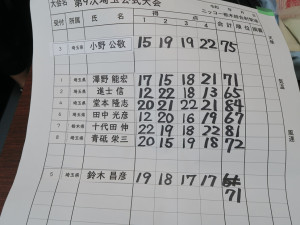 大会名 第9次埼玉公式大会
受付 所属 氏名 1 2 3 4 合計
3 埼玉県 小野 公敬 15 19 19 22 75
1 埼玉県 澤野 能宏 17 15 18 21 71
2 埼玉県 進士 信 12 22 18 13 65
4 埼玉県 堂本 隆志 20 21 22 21 84
6 埼玉県 田中 光彦 12 20 16 19 67
7 栃木県 十代田 伸 22 19 18 22 81
8 埼玉県 青砥 栄三 20 15 19 18 72
5 埼玉県 鈴木 昌彦 19 18 17 17
71